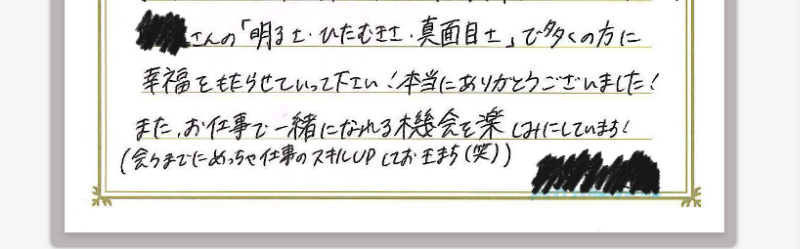 さんの「明るさ・ひたむきさ・真面目さ」で多くの方に
幸福をもたらせていって下さい！本当にありがとうございました！
また、お仕事で一緒になれる機会を楽しみにしています！
(会うまでにめっちゃ仕事のスキルUPしておきます(笑))